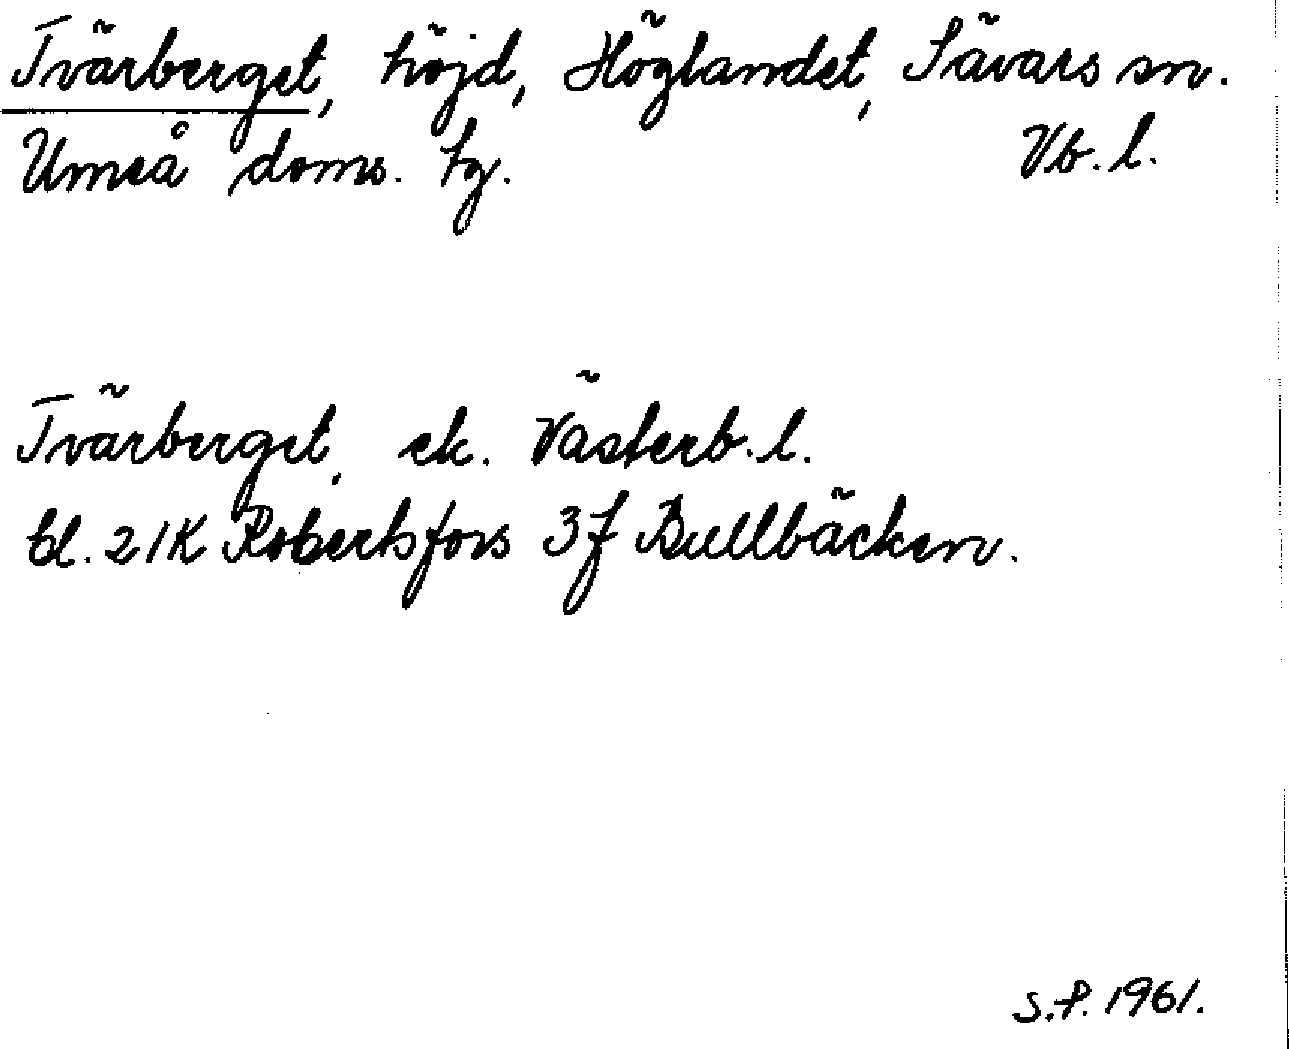 Tvärberget, höjd, Höglandet, Sävars sn.
Umeå doms. tg. Vb. l.
Tvärberget, ek. Västerb. l.
bl. 21K Robertsfors 3f Bullbäcken.
S.P. 1961.